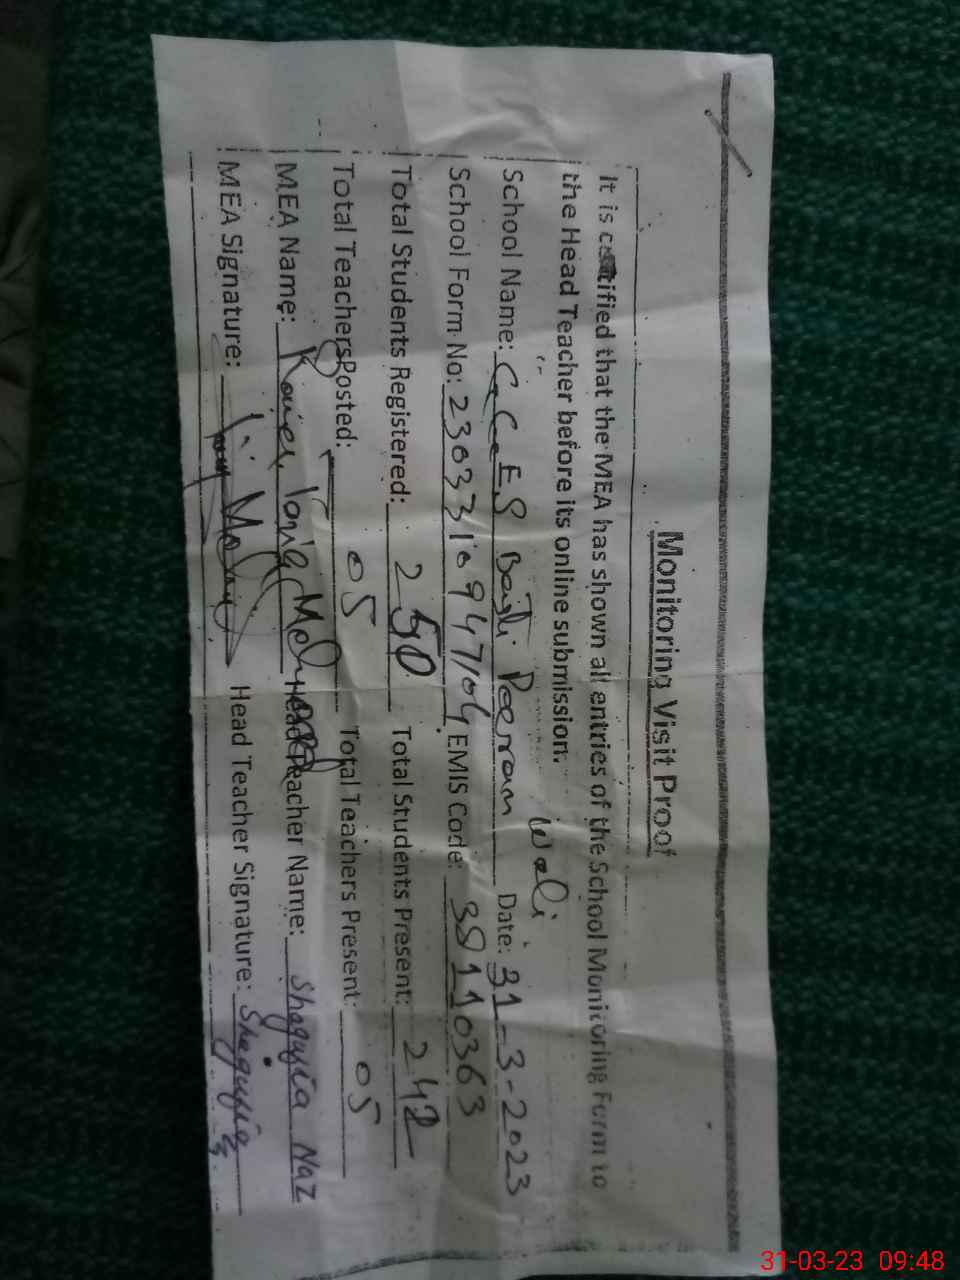 Monitoring Visit Proof
It is certified that the MEA has shown all entries of the School Monitoring Form to
the Head Teacher before its online submission.
School Name: Basti Peeran Wali Date: 31-3-2023
School Form No: EMIS Code: 38110363
Total Students Registered: 250 Total Students Present: 242
Total Teachers Posted: 05 Total Teachers Present: 05
MEA Name: Head Teacher Name: Shagufta Naz
MEA Signature: Head Teacher Signature: Shagufta
31-03-23 09:48